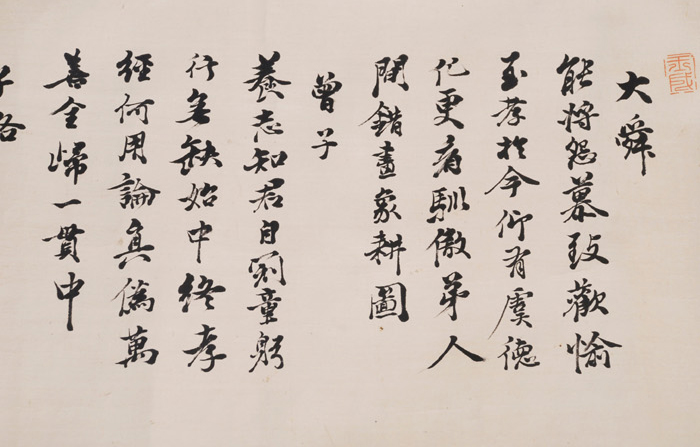 大舜
能將怨慕致歡愉
至孝於今仰有虞德
化更看馴傲弟人
間錯畫象耕圖
曾子
養志知君自童躬
行無缺始中終孝
經何用論真偽萬
善全歸一貫中